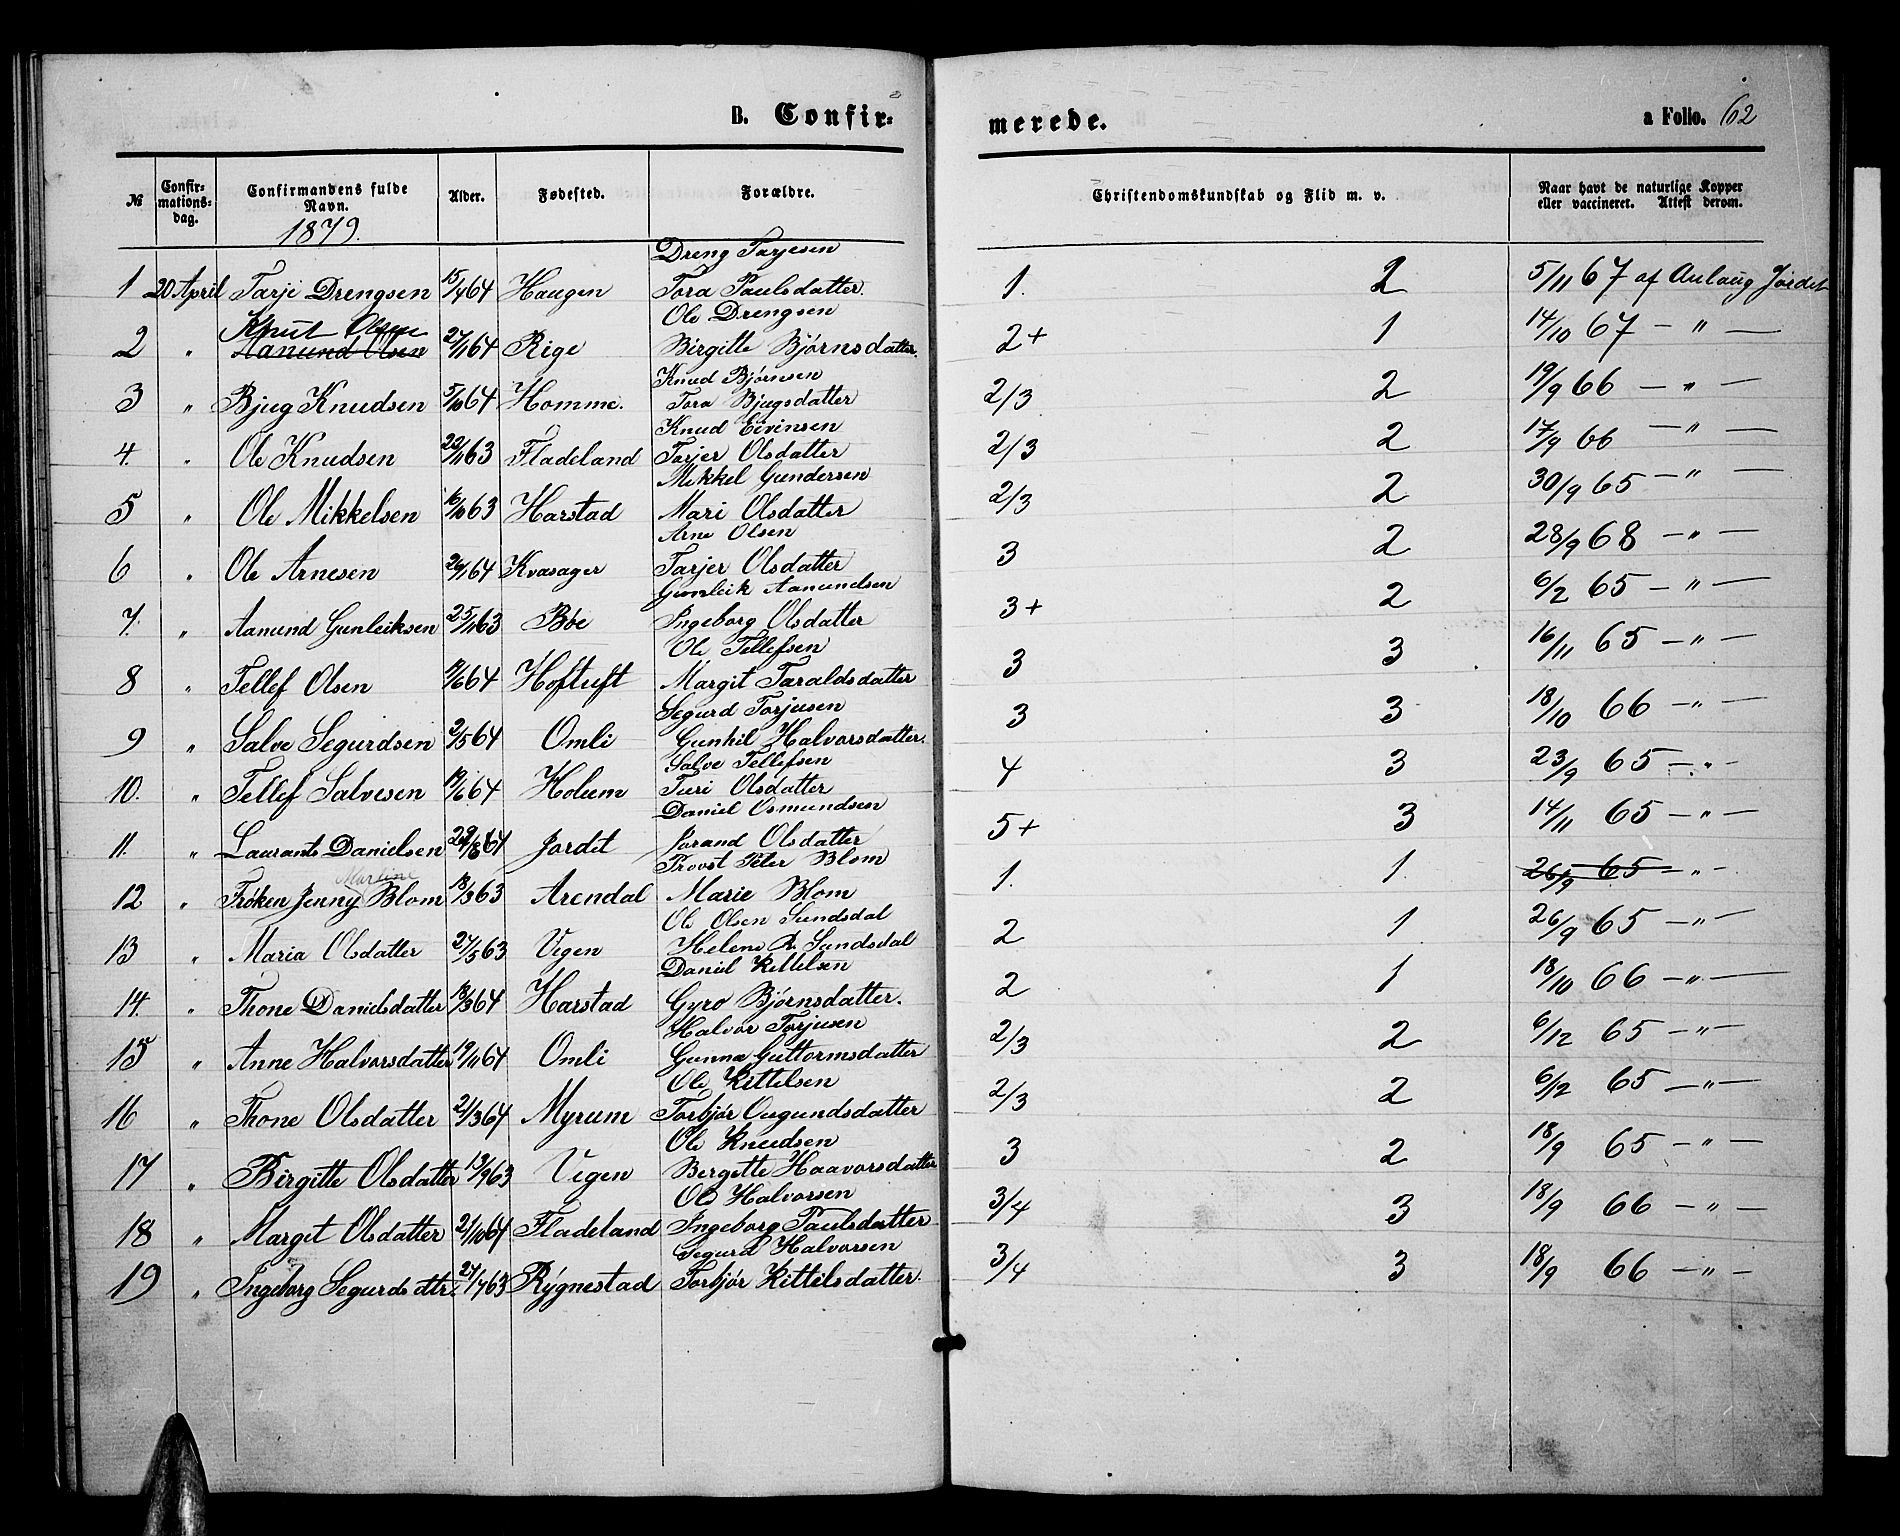 B. Confir-
merede.
a Folio. 62
№
Confir-
mations-
dag.
Confirmandens fulde
Navn.
1879.
Alder.
Fødested.
Forældre.
Christendomskundskab og Flid m. v.
Naar havt de naturlige Kopper
eller vaccineret. Attest derom.
Dreng Tarjesen
1 20 April Tarje Drengsen 15/4 64 Haugen Tora Paulsdatter. 1. 2 5/11 67 af Anlaug Jordet
Knut Olsen Ole Drengsen
2 " Aanund Olsen 27/1 64 Rige Birgitte Bjørnsdatter. 2+ 1 14/10 67 — " —
Knud Bjørnsen
3 " Bjug Knudsen 5/10 64 Homme. Tora Bjugsdatter 2/3 2 19/9 66 — " —
Knud Eivinsen
4. " Ole Knudsen 22/11 63 Fladeland Tarjer Olsdatter 2/3 2 17/9 66 — " —
Mikkel Gundersen
5 " Ole Mikkelsen 16/10 63 Harstad Mari Olsdatter 2/3 2 30/9 65 — "
Arne Olsen
6 " Ole Arnesen 26/1 64 Kvasager Tarjer Olsdatter 3 2 28/9 68 — " —
Gunleik Aanundsen
7. " Aanund Gunleiksen 25/11 63 Bøe Ingeborg Olsdatter 3+ 2 6/2 65 — " —
Ole Tellefsen
8 " Tellef Olsen 19/6 64 Hoftuft Margit Taraldsdatter 3 3 16/11 65 — " —
Segurd Torjusen
9 " Salve Segurdsen 2/5 64 Omli Gunhil Halvorsdatter. 3 3 18/10 66 — " —
Salve Tellefsen
10. " Tellef Salvesen 19/6 64 Holum Turi Olsdatter 4 3 23/9 65 — " —
Daniel Osmundsen
11. " Laurants Danielsen 29/8 64 Jordet Jorand Olsdatter 5+ 3 14/11 65 — " —
Martine Provst Peter Blom
12 " Frøken Jenny Blom 18/3 63 Arendal Marie Blom 1. 1. 26/9 65 — " —
Ole Olsen Sundsdal
13 " Maria Olsdatter 27/5 63 Vegen Helene R. Sundsdal 2 1 26/9 65 — " —
Daniel Kittelsen
14. " Thone Danielsdatter 18/3 64 Harstad Gyro Bjørnsdatter. 2 1 18/10 66 — " —
Halvor Torjusen
15 " Anne Halvorsdatter 19/11 64 Omli Gunna Guttormsdatter 2/3 2 6/12 65 — " —
Ole Kittilsen
16 " Thone Olsdatter 21/3 64 Myrum Torbjør Ougundsdatter 2/3 2 6/2 65 — " —
Ole Knudsen
17 " Birgitte Olsdatter 13/9 63 Vegen Bergitte Haavorsdatter 3 2 18/9 65 — " —
Ole Halvorsen
18 " Margit Olsdatter 21/10 64 Fladeland Ingeborg Paulsdatter 3/4 3 18/9 66 — " —
Segurd Halvorsen
19 " Ingeborg Segurdsdtr. 27/7 63 Rygnestad Torbjør Kittilsdatter. 3/4 3 18/9 66 — " —